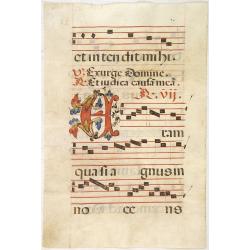 et intendit mihi.
V. Exurge Domine.
R. Et iudica causã meã.
R. vij.
E tam
quasi agnus in
no ce ns